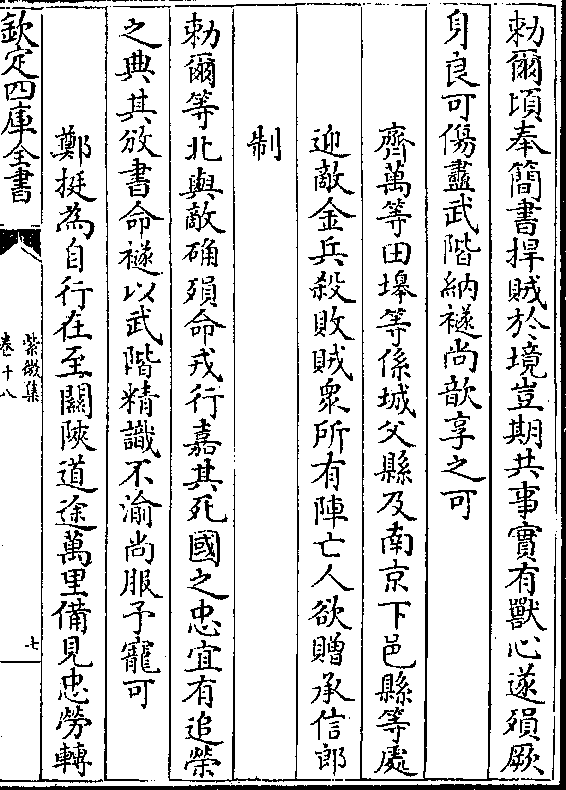 勅爾頃奉簡書捍賊於境豈期共事實有獸心遂殞厥
身良可傷盡武階納襚尚歆享之可
齊萬等田㙲等係城父縣及南京下邑縣等處
迎敵金兵殺敗賊衆所有陣亡人欲贈承信郎
制
勅爾等北與敵确殞命戎行嘉其死國之忠宜有追榮
之典其攽書命襚以武階精識不渝尚服予寵可
鄭挺為自行在至關陜道途萬里備見忠勞轉
欽定四庫全書
紫微集
卷十八
七